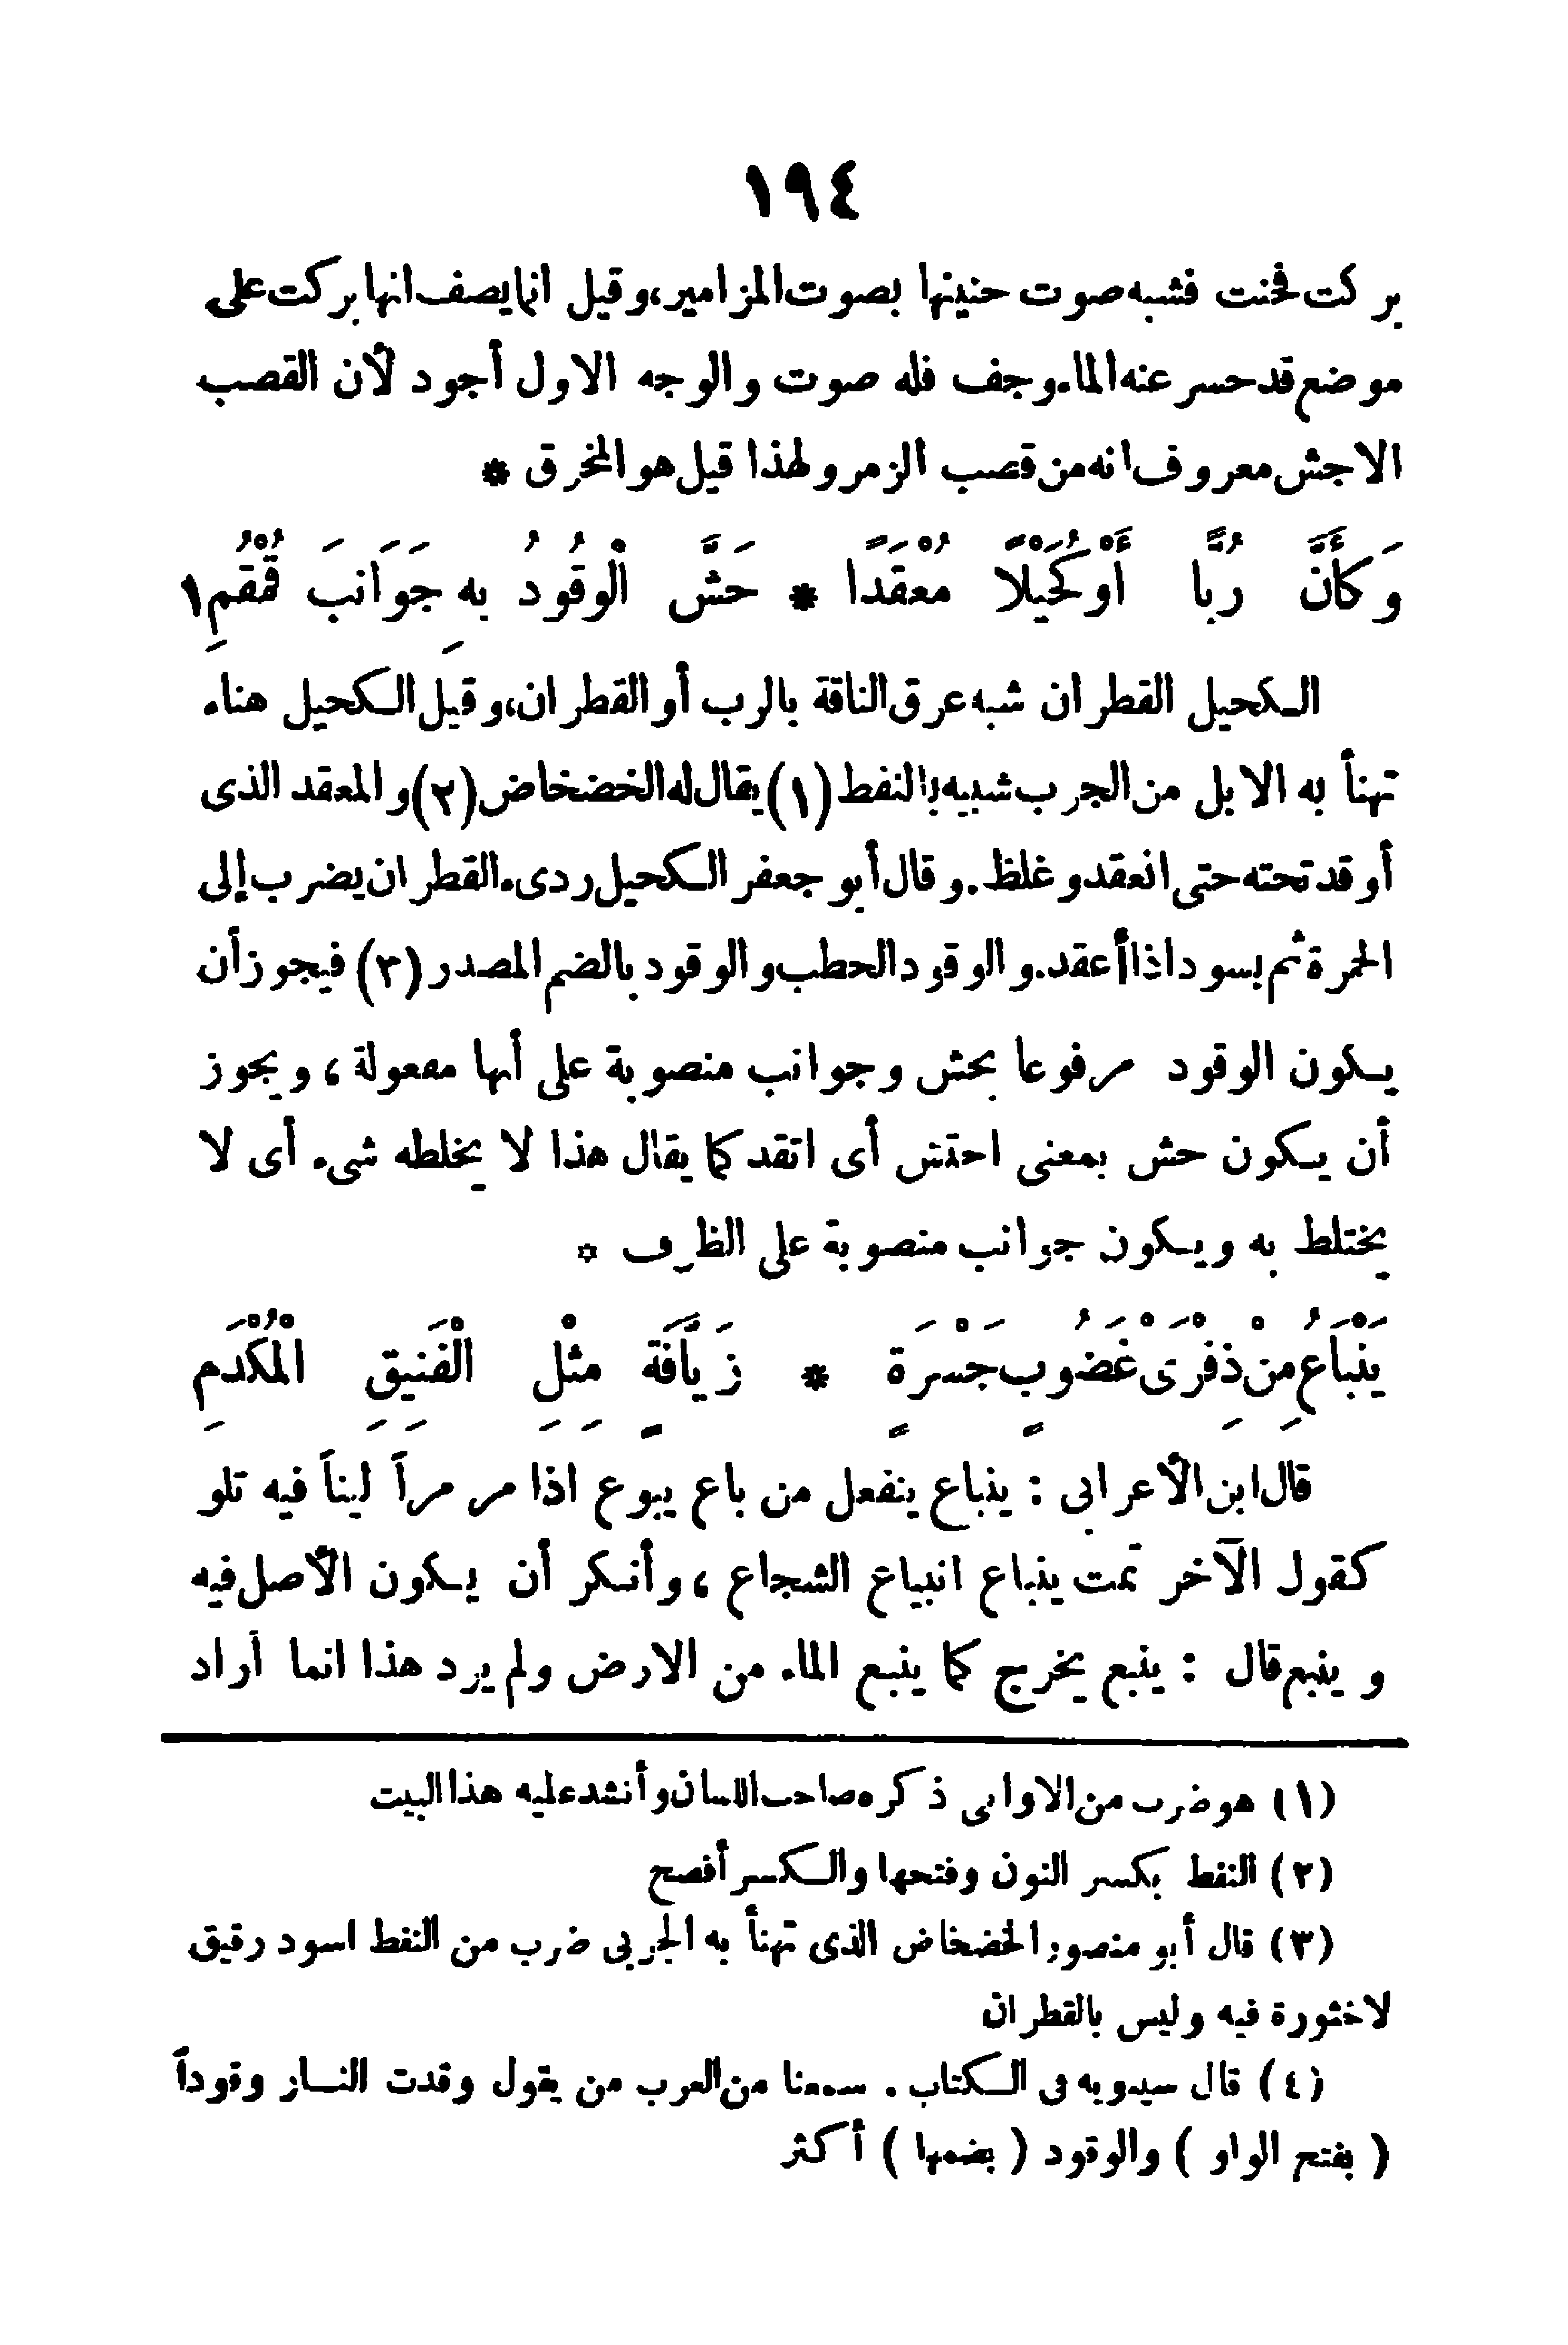 ١٩٤
بركت فحنت فشبه صوت حنينها بصوت المزامير، وقيل انما يصف انها بركت على
موضع قد حسر عنه الماء وجف فله صوت والوجه الاول أجود لأن القصب
الاجش معروف انه من قصب الزمر ولهذا قيل هو المخرق *
وَكَأَنَّ رُبًّا أَوْ كُحَيْلًا مُعْقَدًا * حَشَّ الْوقُودُ بِه جَوَانبَ قُمْقُمِ ١
الكحيل القطران شبه عرق الناقة بالرب أو القطران، وقيل الكحيل هناء
تهنأ به الابل من الجرب شبيه بالنفط (١) يقال له الخضخاض (٢) والمعقد الذى
أوقد تحته حتى انعقد وغلظ. وقال أبو جعفر الكحيل ردىء القطران يضرب إلى
الحمرة ثم يسود اذا أعقد. والوقود الحطب والوقود بالضم المصدر (٣) فيجوز أن
يكون الوقود مرفوعا بحش وجوانب منصوبة على أنها مفعولة، ويجوز
أن يكون حش بمعنى احتش أى اتقد كما يقال هذا لا يخلطه شىء أى لا
يختلط به ويكون جوانب منصوبة على الظرف *
يَنْبَاعُ مِنْ ذِفْرَى غَضُوبٍ جَسْرَةٍ * زَيَّافَةٍ مِثْلِ الْفَنِيقِ الْمُكْدَمِ
قال ابن الأعرابى : ينباع ينفعل من باع يبوع اذا مر مراً ليناً فيه تلو
كقول الآخر ثمت ينباع انبياع الشجاع، وأنكر أن يكون الأصل فيه
و ينبع قال : ينبع يخرج كما ينبع الماء من الارض ولم يرد هذا انما أراد
(١) هو ضرب من الاوانى ذكره صاحب اللسان وأنشد عليه هذا البيت
(٢) النفط بكسر النون وفتحها والكسر أفصح
(٣) قال أبو منصور الخضخاض الذى تهنأ به الجربى ضرب من النفط اسود رقيق
لاخثورة فيه وليس بالقطران
(٤) قال سيبويه فى الكتاب . سمعنا من العرب من يقول وقدت النار وقوداً
( بفتح الواو ) والوقود ( بضمها ) أكثر